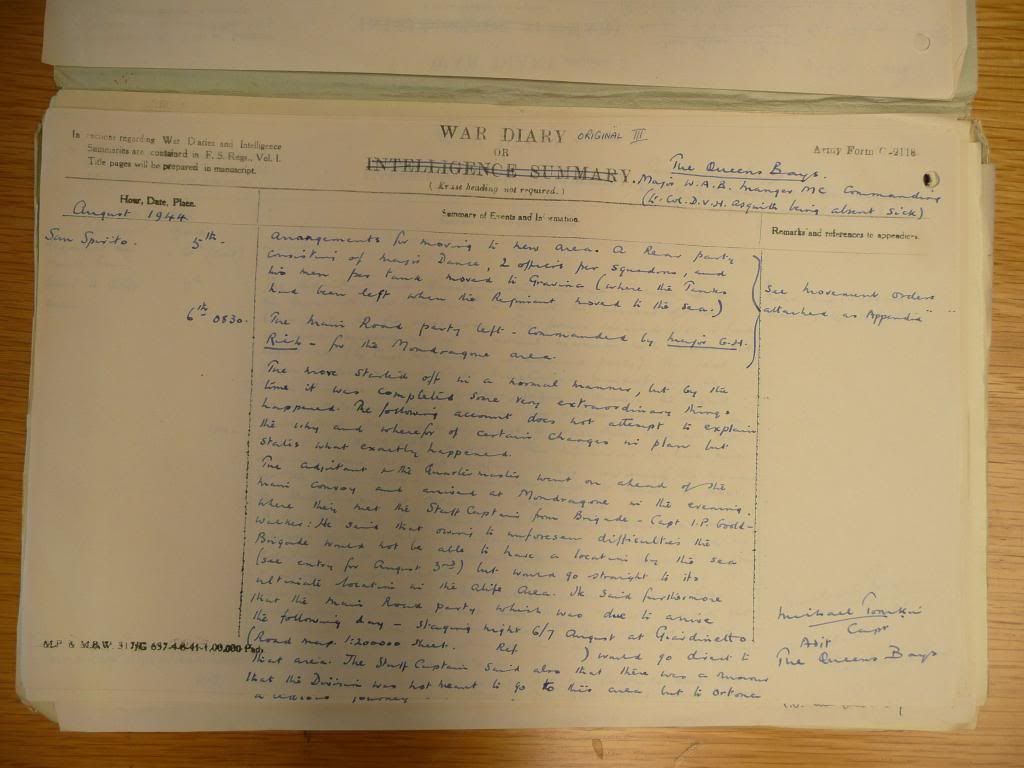 WAR DIARY ORIGINAL III.
OR
INTELLIGENCE SUMMARY.
(Erase heading not required.)
Instructions regarding War Diaries and Intelligence
Summaries are contained in F. S. Regs., Vol. I.
Title pages will be prepared in manuscript.
Army Form C-2118
The Queens Bays.
Major W.A.B. Manger MC Commanding
(Lt. Col. D.V.H. Asquith being absent sick)
Hour, Date, Place.
Summary of Events and Information.
Remarks and references to appendices.
August 1944
San Spirito. 5th.
Arrangements for moving to new area. A Rear party
consisting of Major Dance, 2 officers per squadron, and
his men per tank moved to Gravina (where the Tanks
had been left when the Regiment moved to the sea.)
See Movement orders
attached as Appendix " "
6th 0830.
The Main Road party left - Commanded by Major G.H.
Rich - for the Mondragone area.
The move started off in a normal manner, but by the
time it was completed some very extraordinary things
happened. The following account does not attempt to explain
the why and wherefor of certain changes in plan but
states what exactly happened.
The Adjutant & the Quartermaster went on ahead of the
main convoy and arrived at Mondragone in the evening.
where they met the Staff Captain from Brigade - Capt I.P. Goold-
Walker: He said that owing to unforeseen difficulties the
Brigade would not be able to have a location by the sea
(see entry for August 3rd) but would go straight to its
ultimate location in the Alife Area. He said furthermore
that the Main Road party which was due to arrive
the following day - staging night 6/7 August at Giardinetto.
(Road map 1:200000 Sheet. Ref ) would go direct to
that area. The Staff Captain said also that there was a rumour
that the Division was not meant to go to this area but to Ortona
a journey
Michael Tomkin
Capt
Adjt
The Queens Bays
M.P. & M.B.W. 317/G 657-4-6-41-1,00,000 Pads